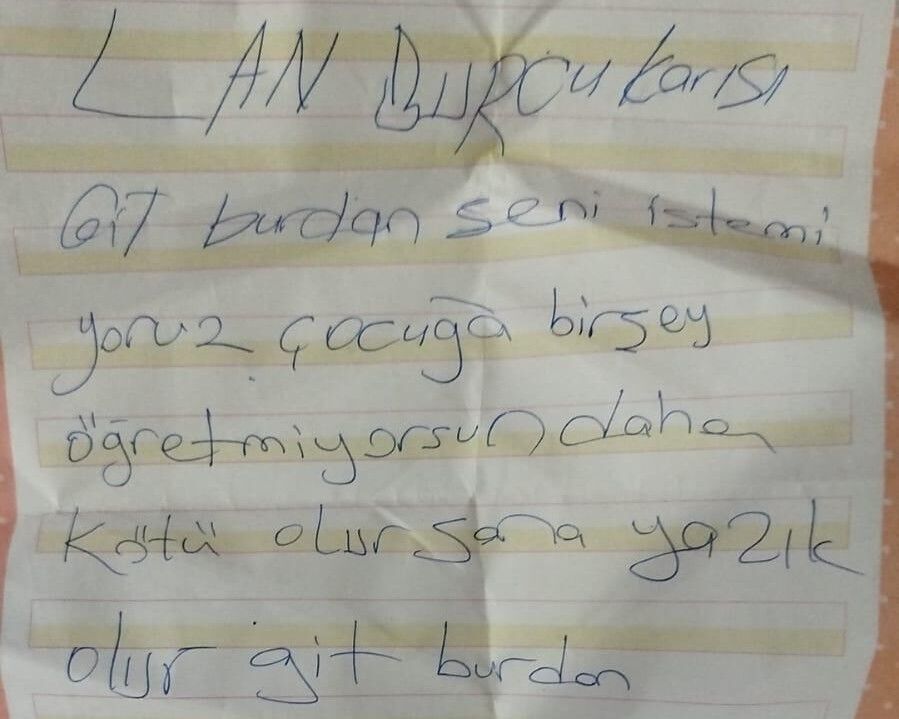 LAN Burcu karısı
Git burdan seni istemi
yoruz çocuğa birşey
öğretmiyorsun daha
kötü olur sana yazık
olur git burdan